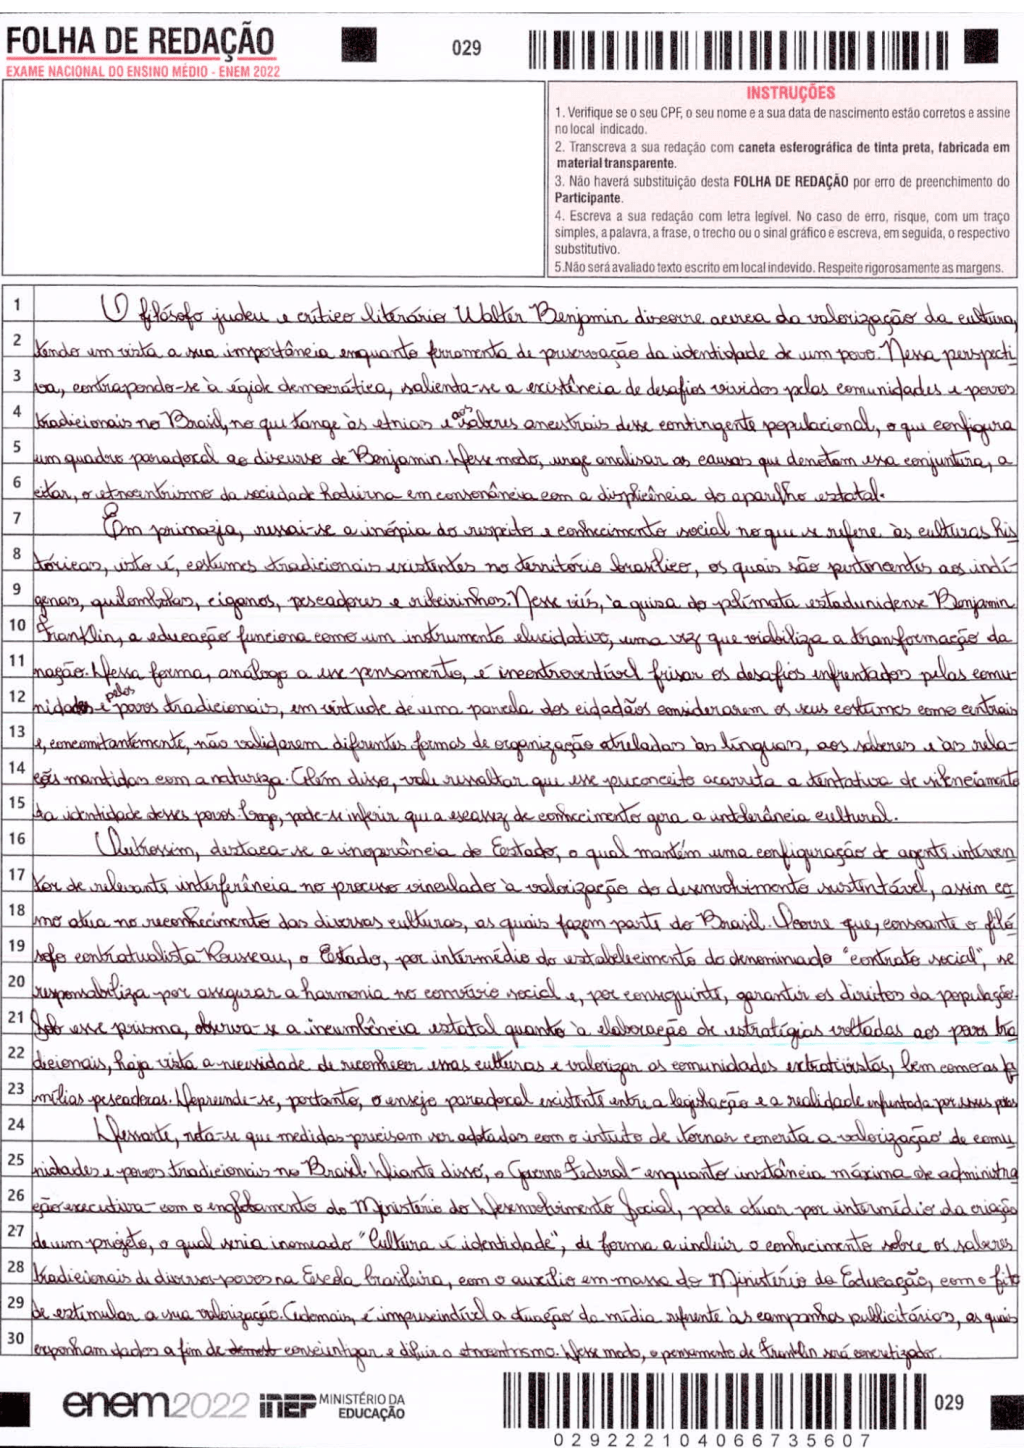 FOLHA DE REDAÇÃO
EXAME NACIONAL DO ENSINO MÉDIO - ENEM 2022
029
INSTRUÇÕES
1. Verifique se o seu CPF, o seu nome e a sua data de nascimento estão corretos e assine
no local indicado.
2. Transcreva a sua redação com caneta esferográfica de tinta preta, fabricada em
material transparente.
3. Não haverá substituição desta FOLHA DE REDAÇÃO por erro de preenchimento do
Participante.
4. Escreva a sua redação com letra legível. No caso de erro, risque, com um traço
simples, a palavra, a frase, o trecho ou o sinal gráfico e escreva, em seguida, o respectivo
substitutivo.
5.Não será avaliado texto escrito em local indevido. Respeite rigorosamente as margens.
1 O filósofo judeu e crítico literário Walter Benjamin discorre acerca da valorização da cultura,
2 tendo em vista a sua importância enquanto ferramenta de preservação da identidade de um povo. Nessa perspecti
3 va, contrapondo-se à égide democrática, salienta-se a existência de desafios vividos pelas comunidades e povos
4 tradicionais no Brasil, no que tange às etnias e aos saberes ancestrais desse contingente populacional, o que configura
5 um quadro paradoxal ao discurso de Benjamin. Desse modo, urge analisar as causas que denotam essa conjuntura, a
6 citar, o etnocentrismo da sociedade hodierna em consonância com a displicência do aparelho estatal.
7 Em primazia, ressai-se a inópia do respeito e conhecimento social no que se refere às culturas his
8 tóricas, isto é, costumes tradicionais existentes no território brasílico, os quais são pertencentes aos indí-
9 genas, quilombolas, ciganos, pescadores e ribeirinhos. Nesse viés, à guisa do polímata estadunidense Benjamin
10 Franklin, a educação funciona como um instrumento elucidativo, uma vez que viabiliza a transformação da
11 nação. Dessa forma, análogo a esse pensamento, é incontrovertível frisar os desafios enfrentados pelas comu-
12 nidades e pelos povos tradicionais, em virtude de uma parcela dos cidadãos considerarem os seus costumes como centrais
13 e, concomitantemente, não validarem diferentes formas de organização atreladas às línguas, aos saberes e às rela-
14 ções mantidas com a natureza. Além disso, vale ressaltar que esse preconceito acarreta a tentativa de silenciamento
15 da identidade desses povos. Logo, pode-se inferir que a escassez de conhecimento gera a intolerância cultural.
16 Outrossim, destaca-se a inoperância do Estado, o qual mantém uma configuração de agente interven
17 tor de relevante interferência no processo vinculado à valorização do desenvolvimento sustentável, assim co
18 mo atua no reconhecimento das diversas culturas, as quais fazem parte do Brasil. Ocorre que, consoante o filó
19 sofo contratualista Rousseau, o Estado, por intermédio do estabelecimento do denominado "contrato social", se
20 responsabiliza por assegurar a harmonia no convívio social e, por conseguinte, garantir os direitos da população.
21 Sob esse prisma, observa-se a incumbência estatal quanto à elaboração de estratégias voltadas aos povos tra
22 dicionais, haja vista a necessidade de reconhecer essas culturas e valorizar as comunidades extrativistas, bem como as fa
23 mílias pescadoras. Depreende-se, portanto, o ensejo paradoxal existente entre a legislação e a realidade enfrentada por esses povos
24 Dessarte, nota-se que medidas precisam ser adotadas com o intuito de tornar concreta a valorização de comu
25 nidades e povos tradicionais no Brasil. Diante disso, o Governo Federal - enquanto instância máxima de administra
26 ção executiva - com o englobamento do Ministério do Desenvolvimento Social, pode atuar por intermédio da criação
27 de um projeto, o qual seria inomeado "Cultura é identidade", de forma a incluir o conhecimento sobre os saberes
28 tradicionais de diversos povos na Escola brasileira, com o auxílio em massa do Ministério da Educação, com o fito
29 de estimular a sua valorização. Ademais, é imprescindível a atuação da mídia referente às campanhas publicitárias, as quais
30 exponham dados a fim de conscientizar e diluir o etnocentrismo. Desse modo, o pensamento de Franklin será concretizado.
enem2022 inep MINISTÉRIO DA
EDUCAÇÃO
029
0292221040667 35607